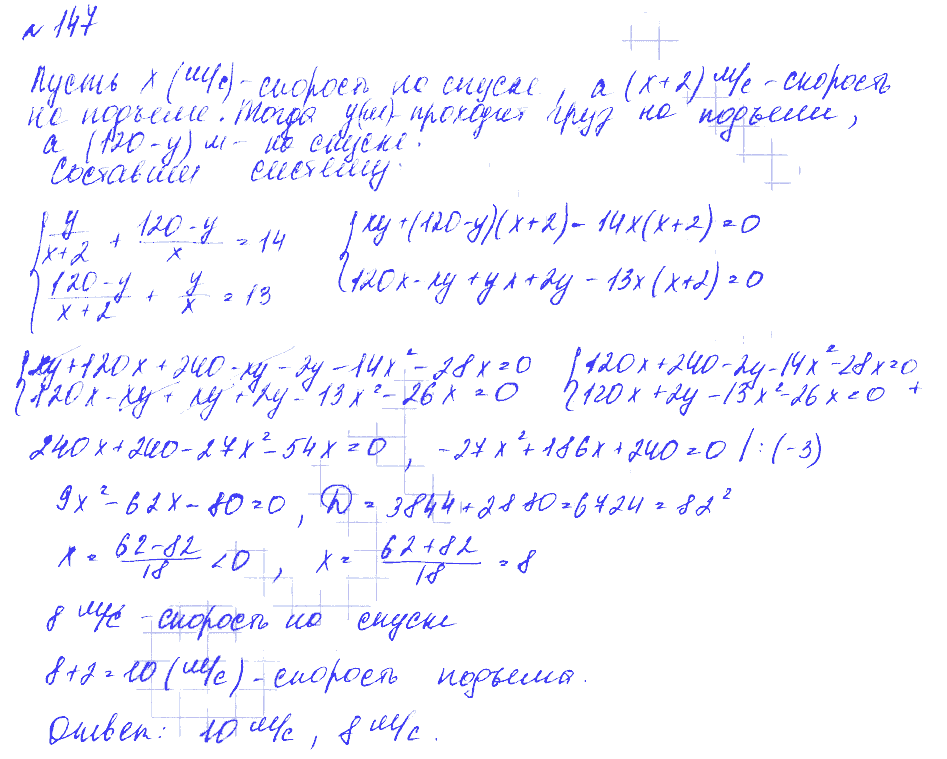 № 147
Пусть x (м/с) - скорость на спуске, а (x+2) м/с - скорость
на подъеме. Тогда y(м) - проходит груз на подъеме,
а (120-y) м - на спуске.
Составим систему.
{ y/(x+2) + (120-y)/x = 14   { xy+(120-y)(x+2) - 14x(x+2)=0
{ (120-y)/(x+2) + y/x = 13   { 120x-xy+yx+2y-13x(x+2)=0
{ xy+120x+240-xy-2y-14x²-28x=0   { 120x+240-2y-14x²-28x=0
{ 120x-xy+xy+2y-13x²-26x=0   { 120x+2y-13x²-26x=0 +
240x+240-27x²-54x=0, -27x²+186x+240=0 |:(-3)
9x²-62x-80=0, D = 3844+2880=6724=82²
x = (62-82)/18 <0, x = (62+82)/18 = 8
8 м/с - скорость на спуске
8+2=10 (м/с) - скорость подъема.
Ответ: 10 м/с, 8 м/с.